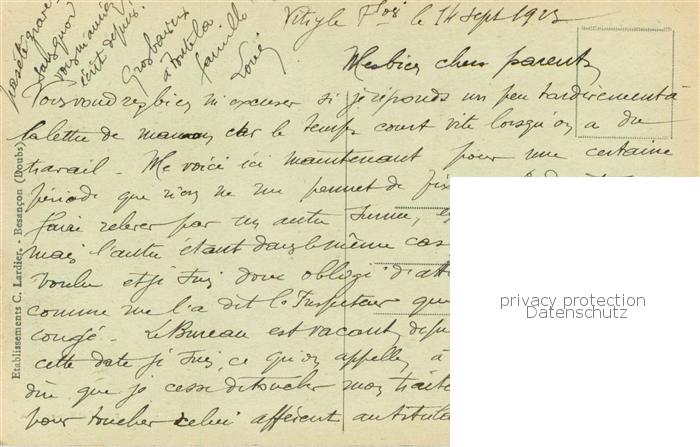 Vitry le F.ois le 14 Sept 1923
Mes bien chers parents
Vous voudrez bien m'excuser si je réponds un peu tardivement à
la lettre de maman car le temps court vite lorsqu'on a du
travail. Me voici ici maintenant pour une certaine
période que rien ne me permet de
faire relever par un autre
mais l'autre étant dans le même cas
voulu et je suis donc obligé d'att
comme me l'a dit l'Inspecteur que
congé. Le Bureau est vacant depu
cette date je suis, ce qu'on appelle, à
dire que je cesse de toucher mon traite
pour toucher celui afférent au titula
pas été grave
sans quoi
vous m'auriez
écrit depuis.
Gros baisers
à toute la
famille
Etablissements C. Lardier - Besançon (Doubs)
privacy protection
Datenschutz